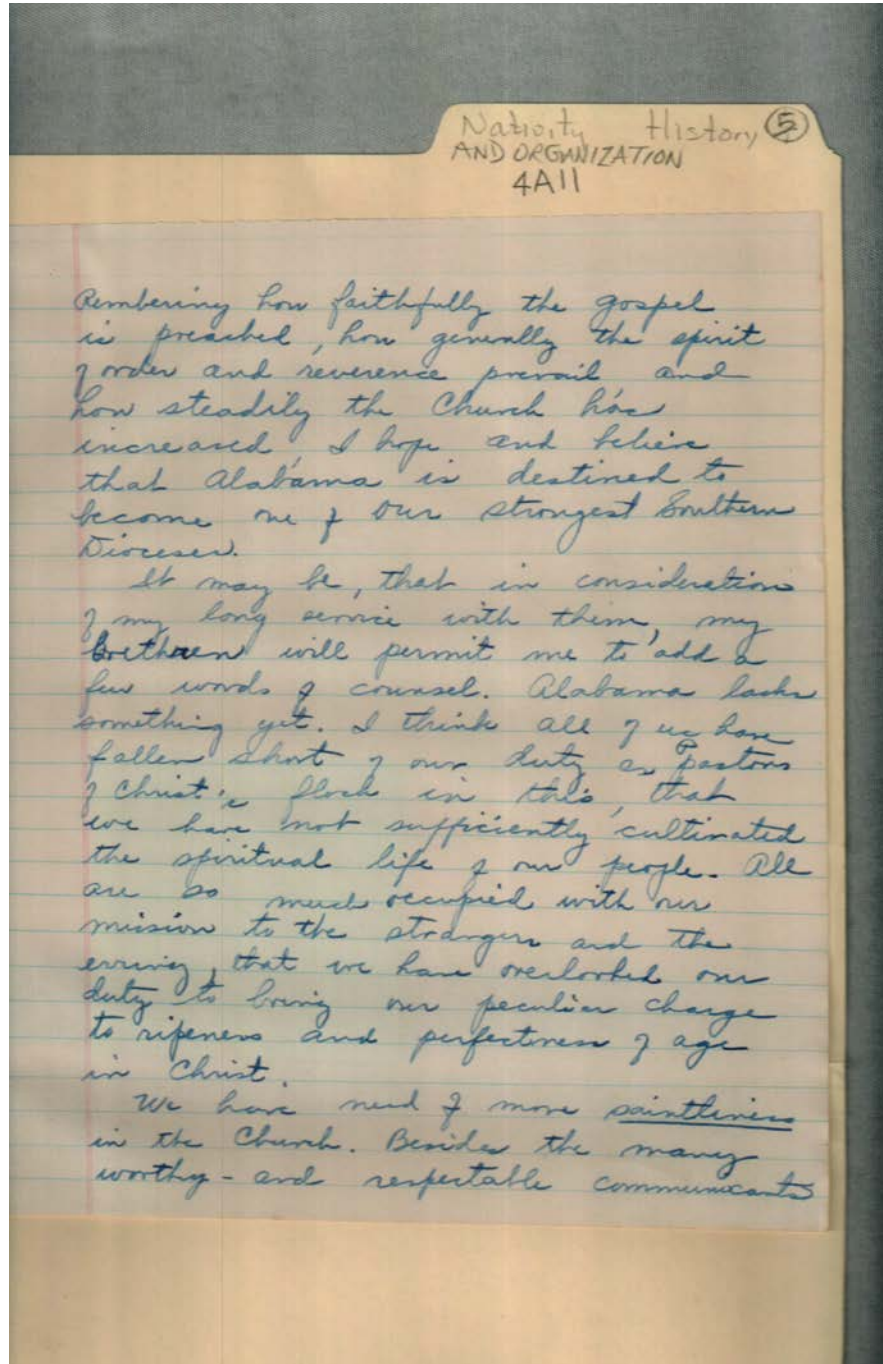 Nativity History 5
AND ORGANIZATION
4A11
Rembering how faithfully the gospel
is preached, how generally the spirit
of order and reverence prevail and
how steadily the Church has
increased, I hope and believe
that Alabama is destined to
become one of our strongest Southern
Dioceses.
It may be, that in consideration
of my long service with them, my
Brethren will permit me to add a
few words of counsel. Alabama lacks
something yet. I think all of us have
fallen short of our duty as pastors
of Christ's flock in this, that
we have not sufficiently cultivated
the spiritual life of our people. All
are so much occupied with our
mission to the strangers and the
erring, that we have overlooked our
duty to bring our peculiar charge
to ripeness and perfectness of age
in Christ.
We have need of more saintliness
in the Church. Besides the many
worthy - and respectable communicants